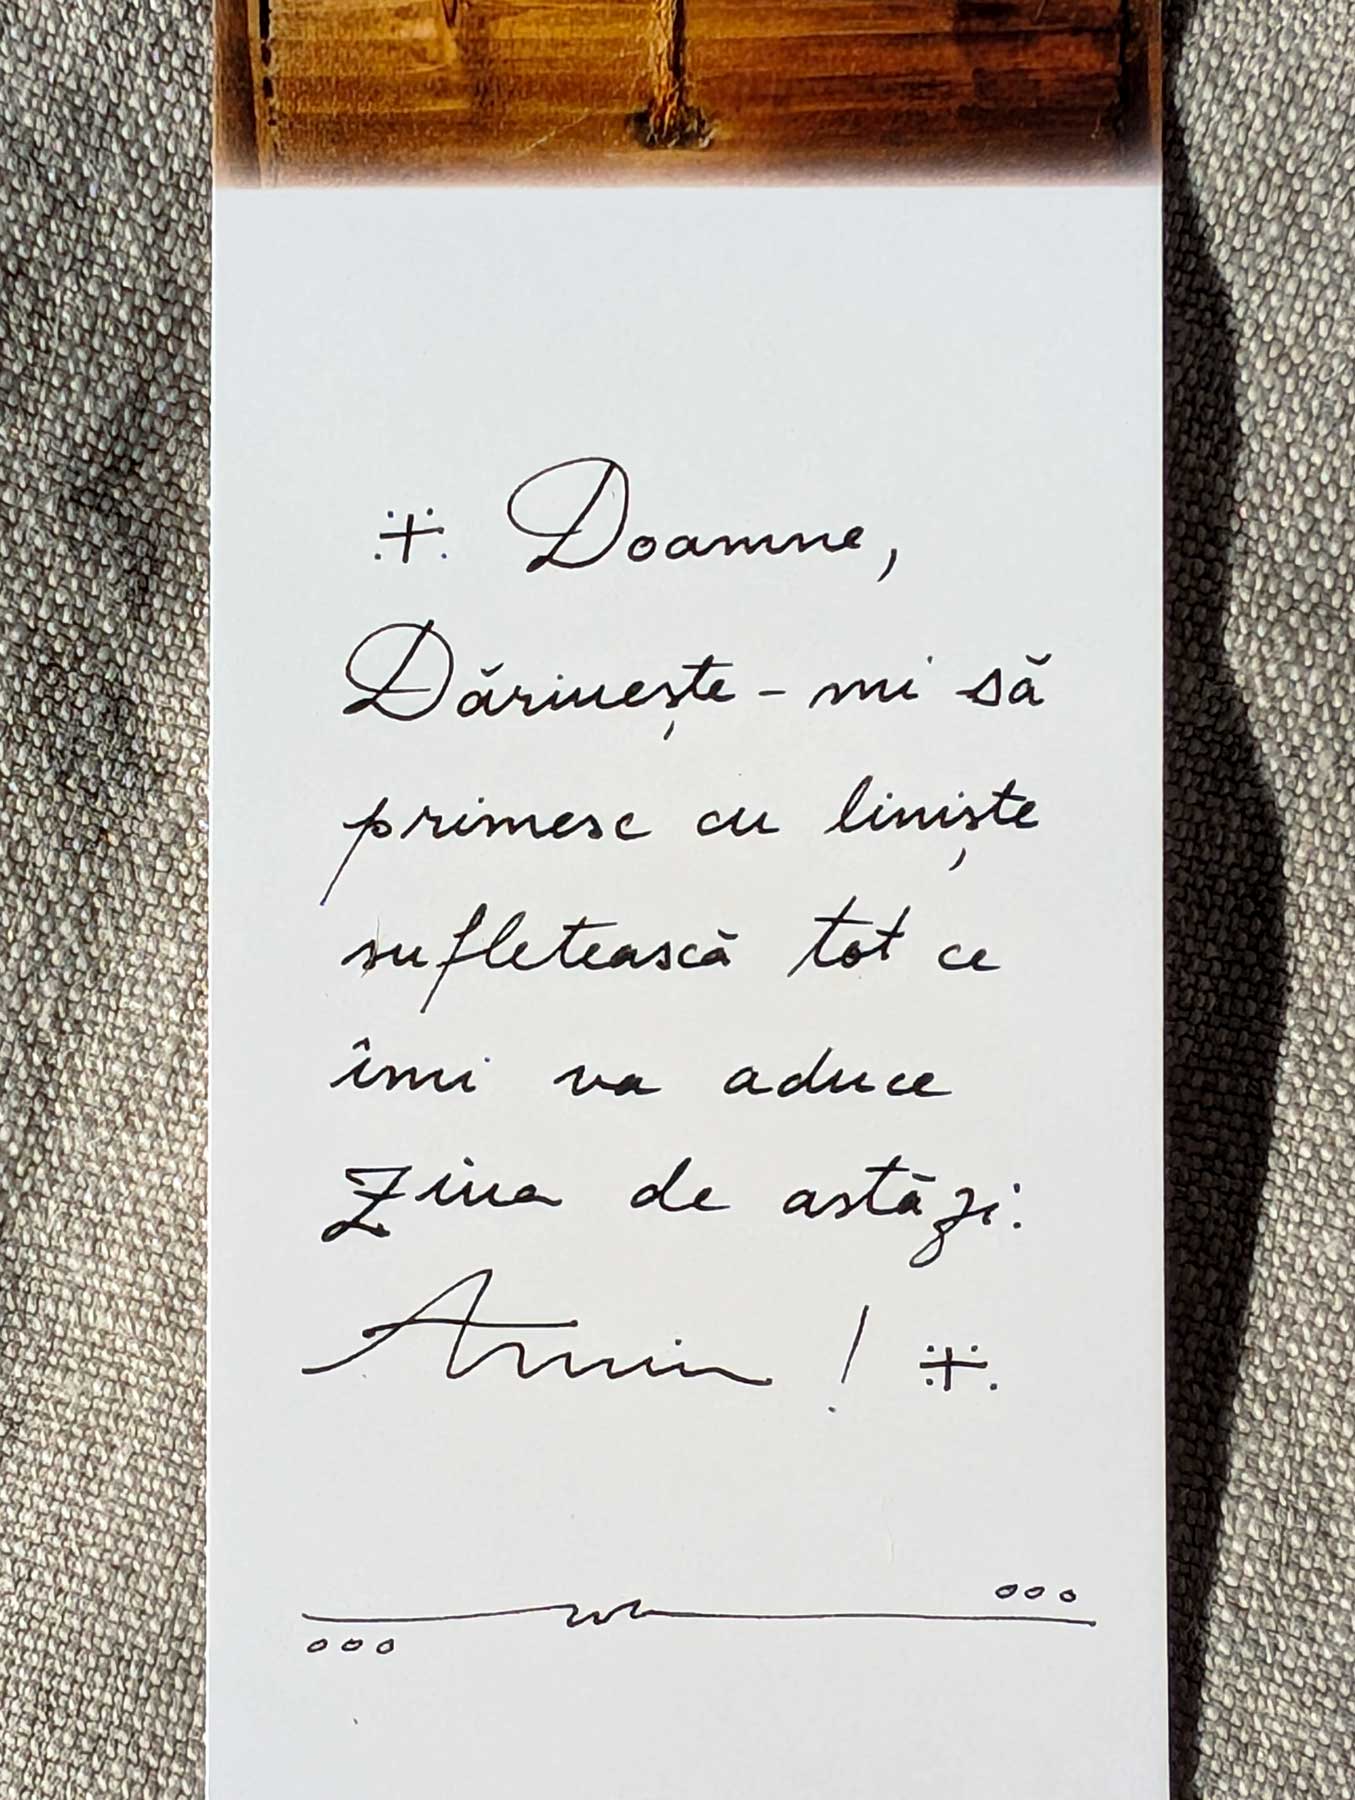 Doamne,
Dăruiește-mi să
primesc cu liniște
sufletească tot ce
îmi va aduce
Ziua de astăzi:
Amin!